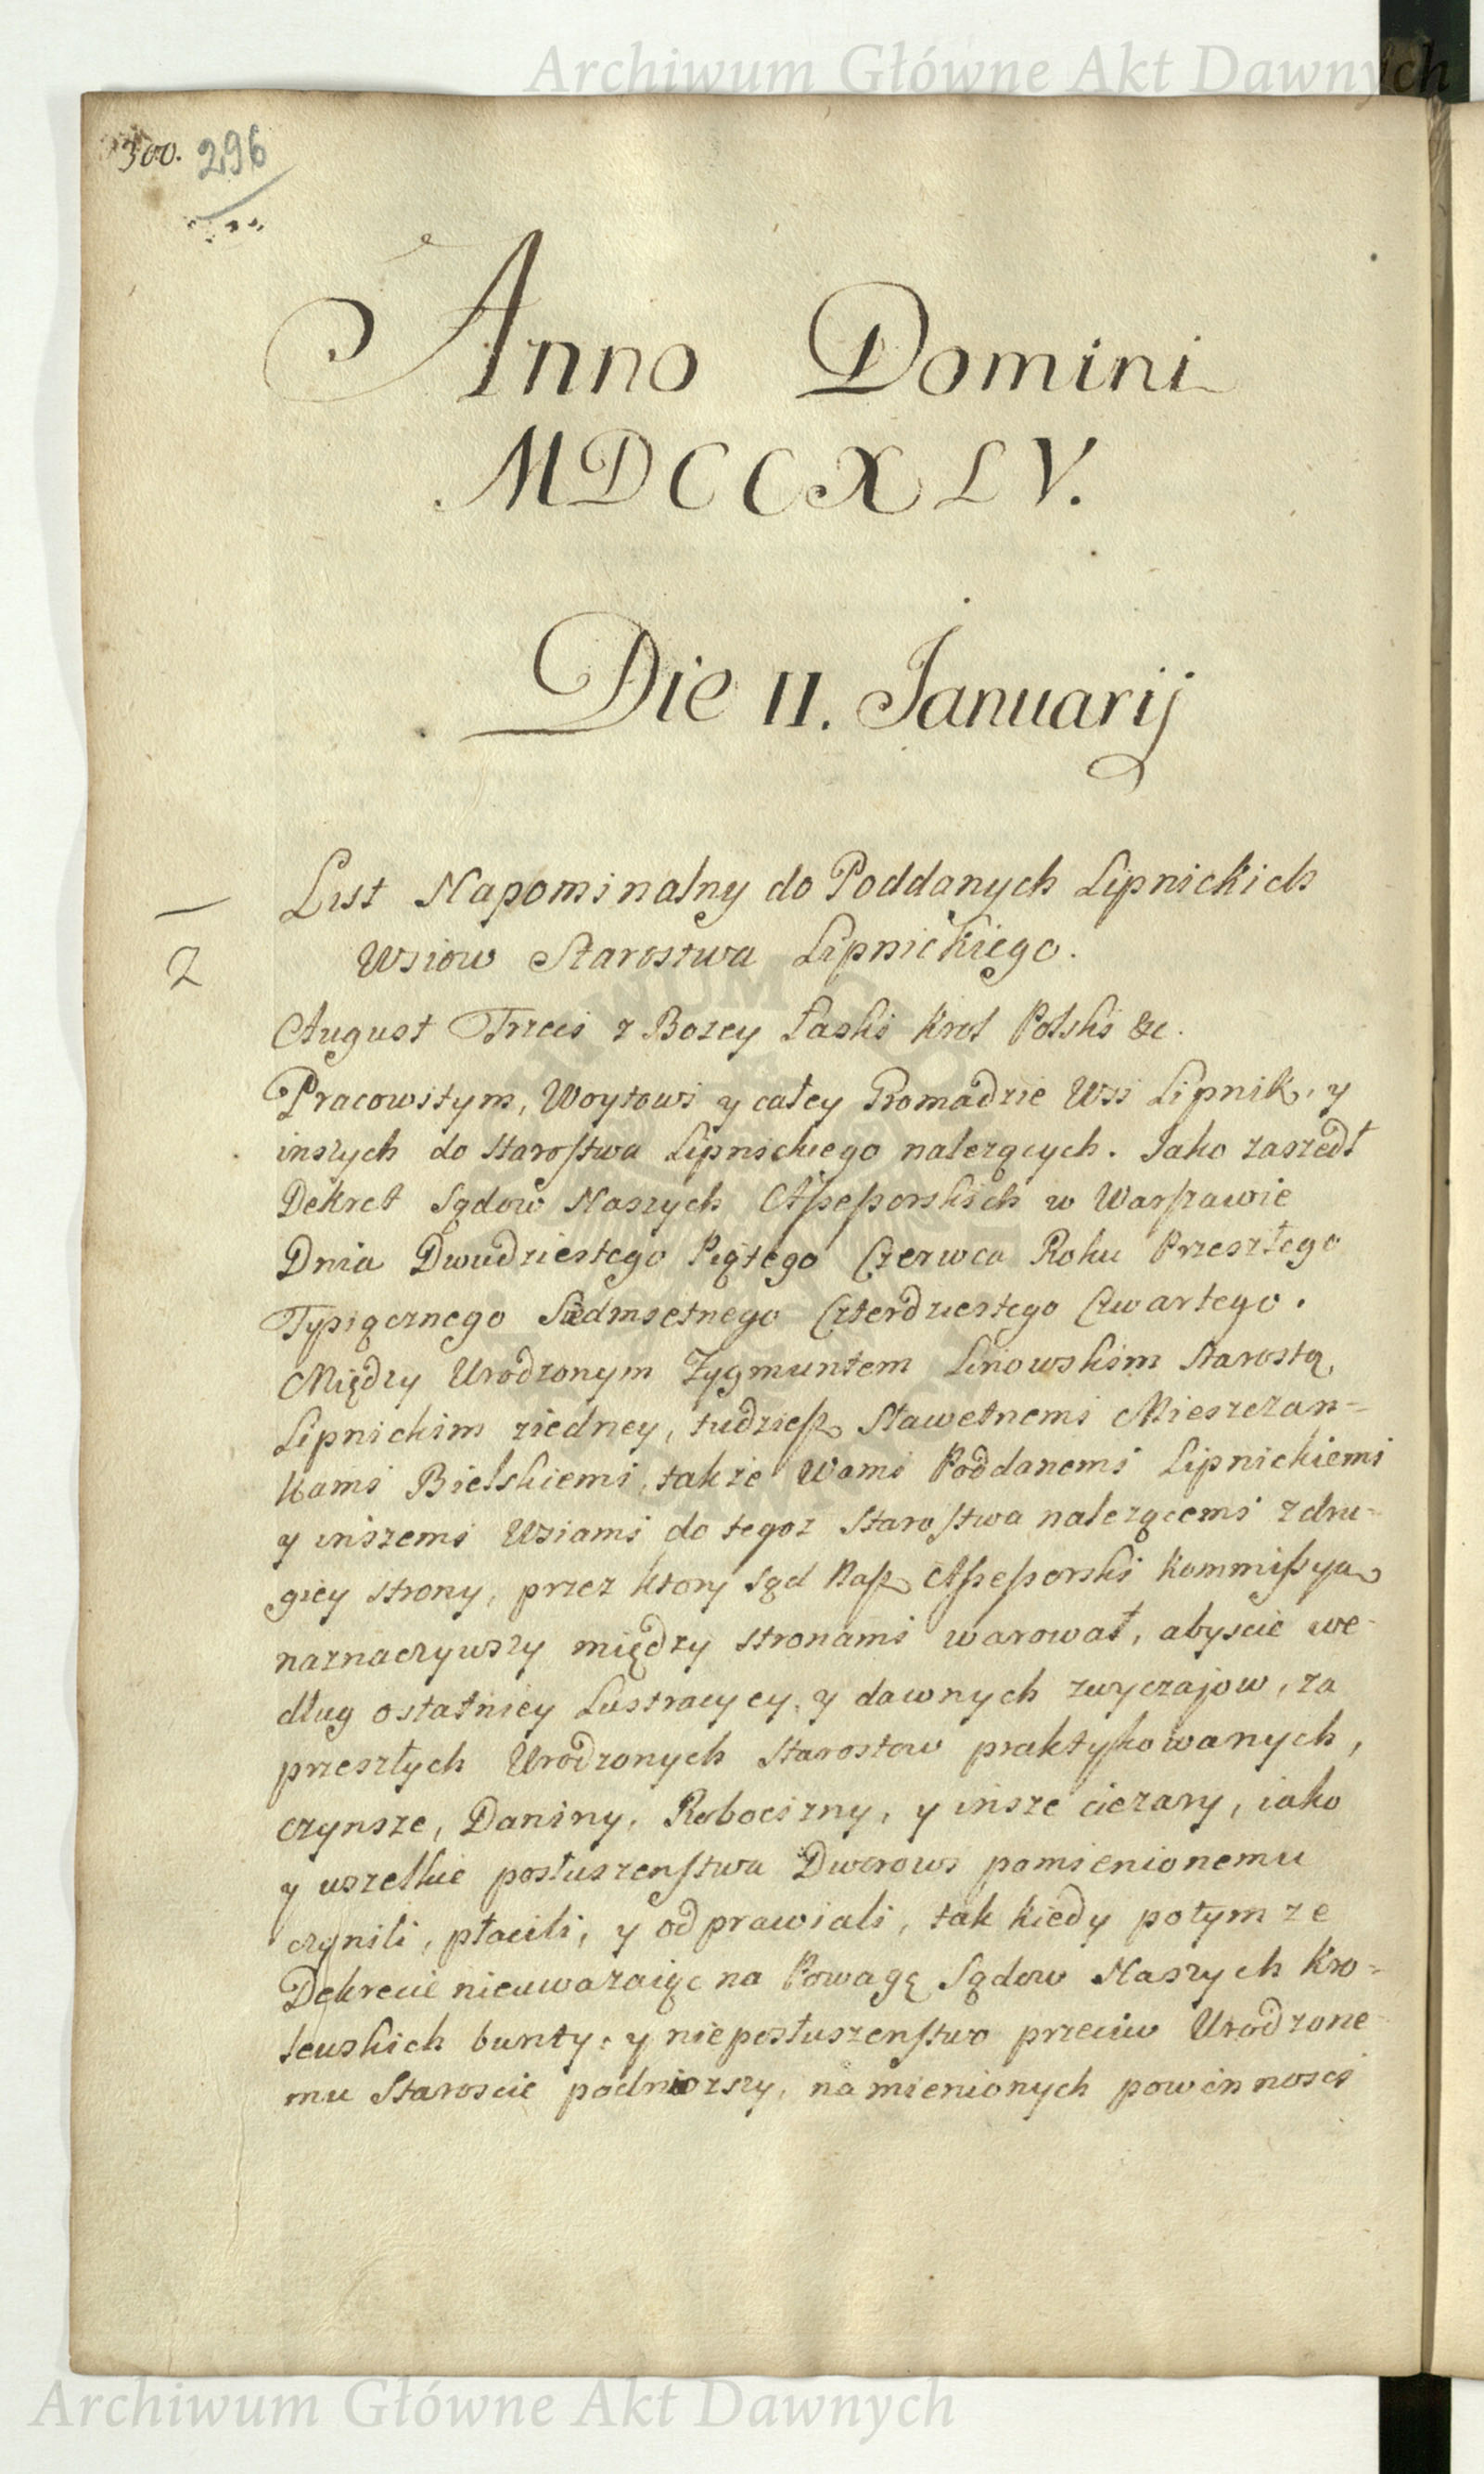 Archiwum Główne Akt Dawnych
300. 296
Anno Domini
MDCCXLV.
Die 11. Januarij
List Napominalny do Poddanych Lipnickich
2
Wsiow Starostwa Lipnickiego.
August Trzeci z Bozey Łaski Krol Polski &c.
Pracowitym, Woytowi y całey Gromadzie Wsi Lipnik, y
inszych do Starostwa Lipnickiego nalezących. Jako zaszedł
Dekret Sądow Naszych Assessorskich w Warszawie
Dnia Dwudziestego Piątego Czerwca Roku Przeszłego
Tysiącznego Siedmsetnego Czterdziestego Czwartego.
Między Urodzonym Zygmuntem Linowskim Starostą
Lipnickim ziedney, tudziesz Sławetnemi Mieszczan=
kami Bielskiemi, takze Wami Poddanemi Lipnickiemi
y inszemi Wsiami do tegoz Starostwa nalezącemi z dru=
giey strony, przez ktory Sąd Nasz Assessorski Kommissya
naznaczywszy między stronami warował, abyscie we=
dług ostatniey Lustracycy, y dawnych zwyczajow, za
przeszłych Urodzonych Starostow praktykowanych,
czynsze, Daniny, Robocizny, y insze ciezary, iako
y wszelkie posłuszenstwa Dworowi pomienionemu
czynili, płacili, y odprawiali, tak kiedy potym ze
Dekrecie nieuwazaiąc na Powagę Sądow Naszych Kro=
lewskich bunty, y nieposłuszenstwo przeciw Urodzone=
mu Staroscie podniozszy, namienionych powinnosci
Archiwum Główne Akt Dawnych